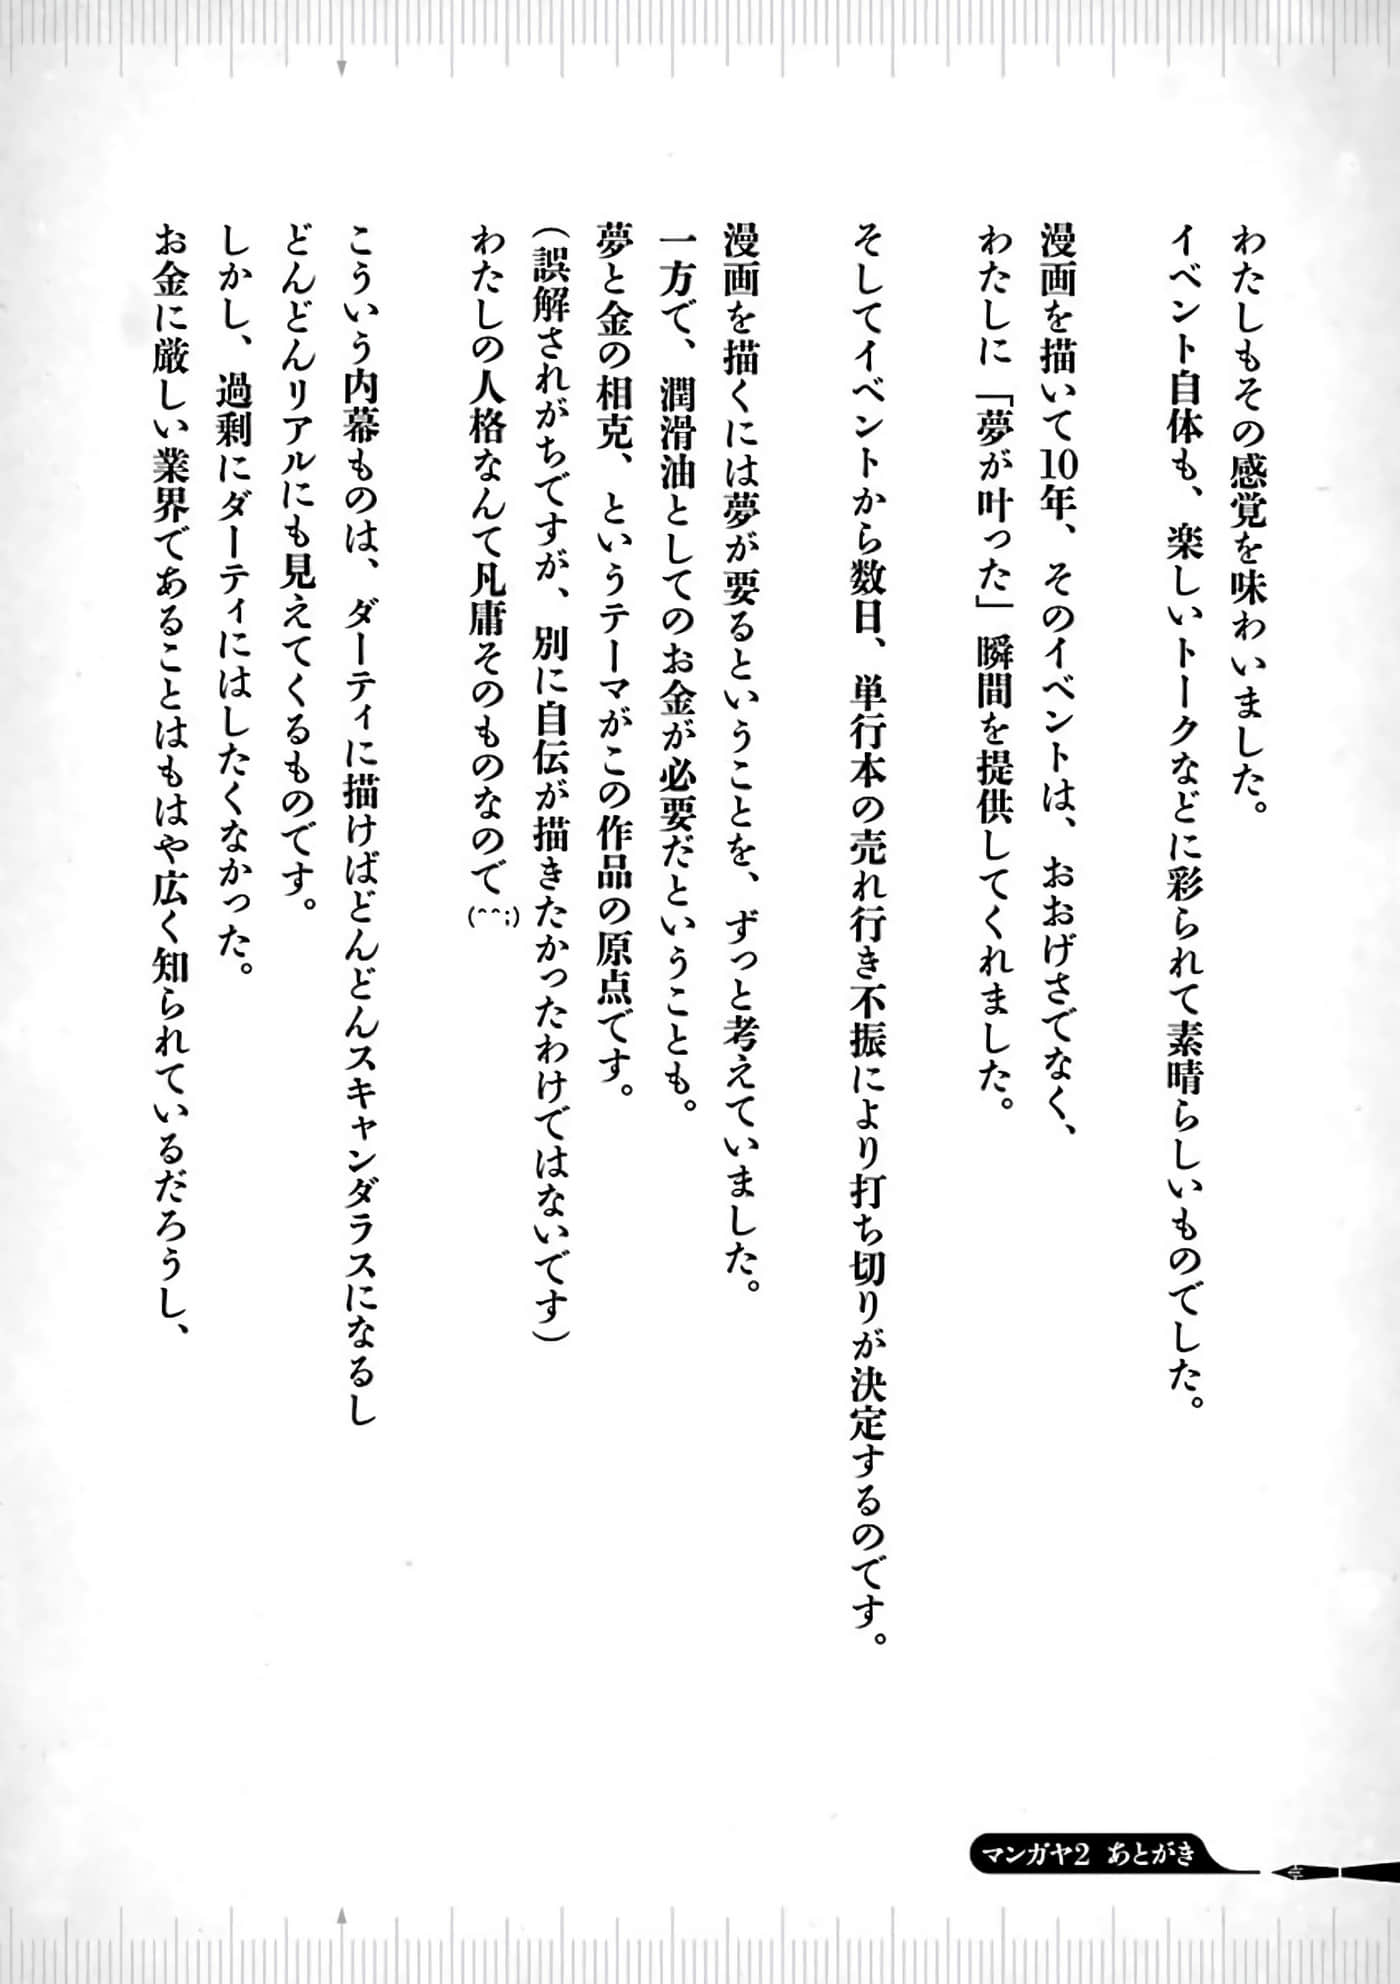 わたしもその感覚を味わいました。
イベント自体も、楽しいトークなどに彩られて素晴らしいものでした。
漫画を描いて10年、そのイベントは、おおげさでなく、
わたしに「夢が叶った」瞬間を提供してくれました。
そしてイベントから数日、単行本の売れ行き不振により打ち切りが決定するのです。
漫画を描くには夢が要るということを、ずっと考えていました。
一方で、潤滑油としてのお金が必要だということも。
夢と金の相克、というテーマがこの作品の原点です。
(誤解されがちですが、別に自伝が描きたかったわけではないです)
わたしの人格なんて凡庸そのものなので(^^;)
こういう内幕ものは、ダーティに描けばどんどんスキャンダラスになるし
どんどんリアルにも見えてくるものです。
しかし、過剰にダーティにはしたくなかった。
お金に厳しい業界であることはもはや広く知られているだろうし、
マンガヤ2 あとがき